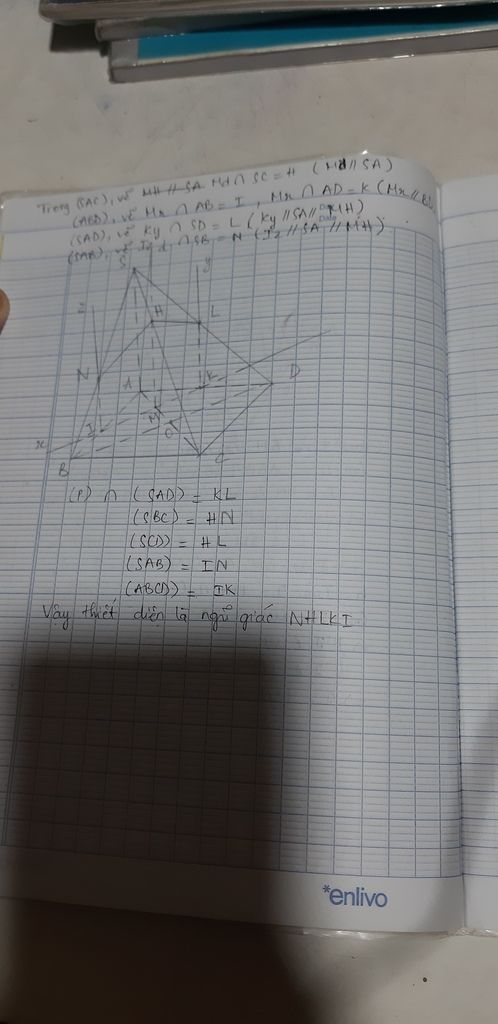 Trong (SAC), vẽ MH // SA Md ∩ SC = H (Md // SA)
(ABD), vẽ Mx ∩ AB = I , Mx ∩ AD = K (Mx // BD
(SAD), vẽ Ky ∩ SD = L (Ky // SA // MH)
(SAB), vẽ ∩ SB = N (Iz // SA // MH)
S y
z H L
N A K D
M
x I O
B C
(P) ∩ (SAD) = KL
(SBC) = HN
(SCD) = HL
(SAB) = IN
(ABCD) = IK
Vậy thiết diện là ngũ giác NHLKI
*enlivo